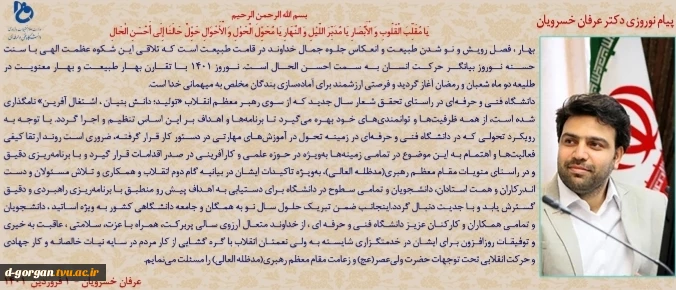 پیام نوروزی دکتر عرفان خسرویان
بسم الله الرحمن الرحیم
یَا مُقَلِّبَ الْقُلُوبِ وَ الْأَبْصَارِ یَا مُدَبِّرَ اللَّیْلِ وَ النَّهَارِ یَا مُحَوِّلَ الْحَوْلِ وَ الْأَحْوَالِ حَوِّلْ حَالَنَا إِلَى أَحْسَنِ الْحَالِ
بهار ، فصل رویش و نو شدن طبیعت و انعکاس جلوه جمال خداوند در قامت طبیعت است که تلاقی این شکوه عظمت الهی با سنت
حسنه نوروز بیانگر حرکت انسان به سمت احسن الحال است. نوروز ۱۴۰۱ با تقارن بهار طبیعت و بهار معنویت در
طلیعه دو ماه شعبان و رمضان آغاز گردید و فرصتی ارزشمند برای آماده‌سازی بندگان مخلص به میهمانی خدا است.
دانشگاه فنی و حرفه‌ای در راستای تحقق شعار سال جدید که از سوی رهبر معظم انقلاب «تولید؛ دانش بنیان ، اشتغال آفرین» نامگذاری
شده است، از همه ظرفیت‌ها و توانمندی‌های خود بهره می‌گیرد تا برنامه‌ها و اهداف بر این اساس تنظیم و اجرا گردد. با توجه به
رویکرد تحولی که در دانشگاه فنی و حرفه‌ای در زمینه تحول در آموزش‌های مهارتی در دستور کار قرار گرفته، ضروری است روند ارتقا کیفی
فعالیت‌ها و اهتمام به این موضوع در تمامی زمینه‌ها به‌ویژه در حوزه علمی و کارآفرینی در صدر اقدامات قرار گیرد و با برنامه‌ریزی دقیق
و در راستای منویات مقام معظم رهبری(مدظله العالی)، به‌ویژه تاکیدات ایشان در بیانیه گام دوم انقلاب و همکاری و تلاش مسئولان و دست
اندرکاران و همت استادان، دانشجویان و تمامی سطوح در دانشگاه برای دستیابی به اهداف پیش رو منطبق با برنامه‌ریزی راهبردی و دقیق
گسترش یابد و با جدیت دنبال گردد.اینجانب ضمن تبریک حلول سال نو به همگان و جامعه دانشگاهی کشور به ویژه اساتید ، دانشجویان
و تمامی همکاران و کارکنان عزیز دانشگاه فنی و حرفه ای ، از خداوند متعال آرزوی سالی پربرکت، همراه با عزت، سلامتی ، عاقبت به خیری
و توفیقات روزافزون برای ایشان در خدمتگزاری شایسته به ولی نعمتان انقلاب با گره گشایی از کار مردم در سایه نیات خالصانه و کار جهادی
و حرکت انقلابی تحت توجهات حضرت ولی‌عصر(عج) و زعامت مقام معظم رهبری(مدظله العالی) را مسئلت می‌نمایم.
عرفان خسرویان
d-gorgan.tvu.ac.ir